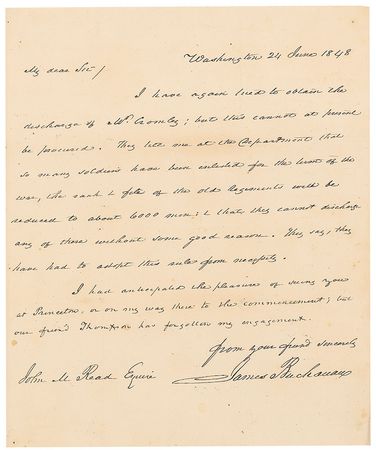 Washington 24 June 1848
My dear Sir/
I have again tried to obtain the
discharge of Mr. Cromley; but this cannot at present
be procured. They tell me at the Department that
so many soldiers have been enlisted for the term of the
war, the rank & file of the old Regiments will be
reduced to about 6000 men; & that they cannot discharge
any of those without some good reason. They say, they
have had to adopt this rule from necessity.
I had anticipated the pleasure of seeing you
at Princeton, or on my way there to the commencement; but
our friend Thomson has forgotten my engagement.
from your friend sincerely
James Buchanan
John M Read Esquire